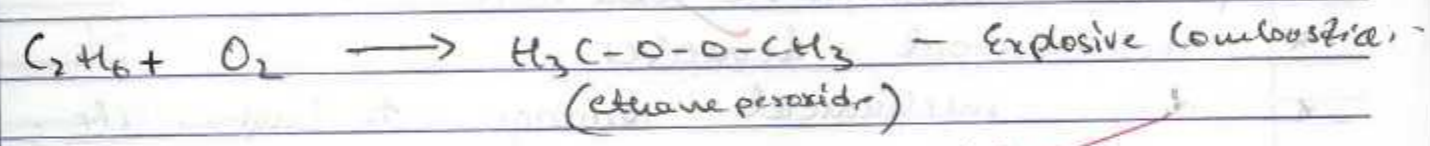 C₂H₆ + O₂ ⟶ H₃C-O-O-CH₃ - Explosive Combustion.
(ethane peroxide)